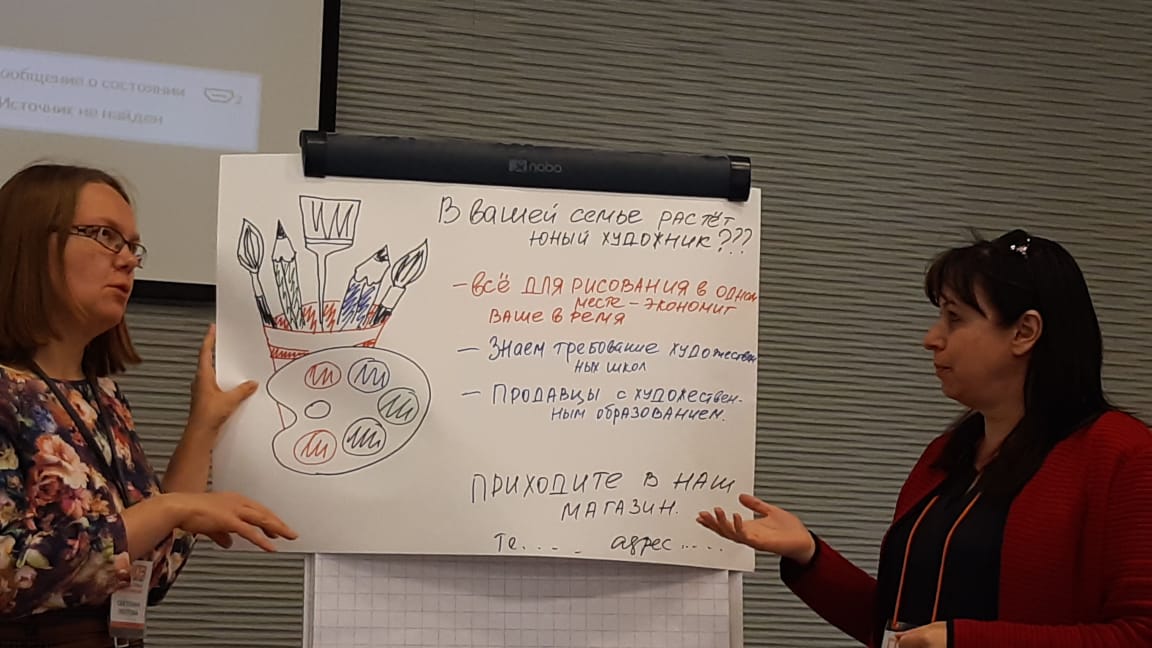 ообщение о состоянии
2
Источник не найден
nobo
В вашей семье растёт
юный художник???
– Всё для рисования в одном
месте – экономит
ваше время
– Знаем требование художествен
ных школ
– Продавцы с художествен-
ным образованием.
Приходите в наш
магазин.
Те.... адрес.....